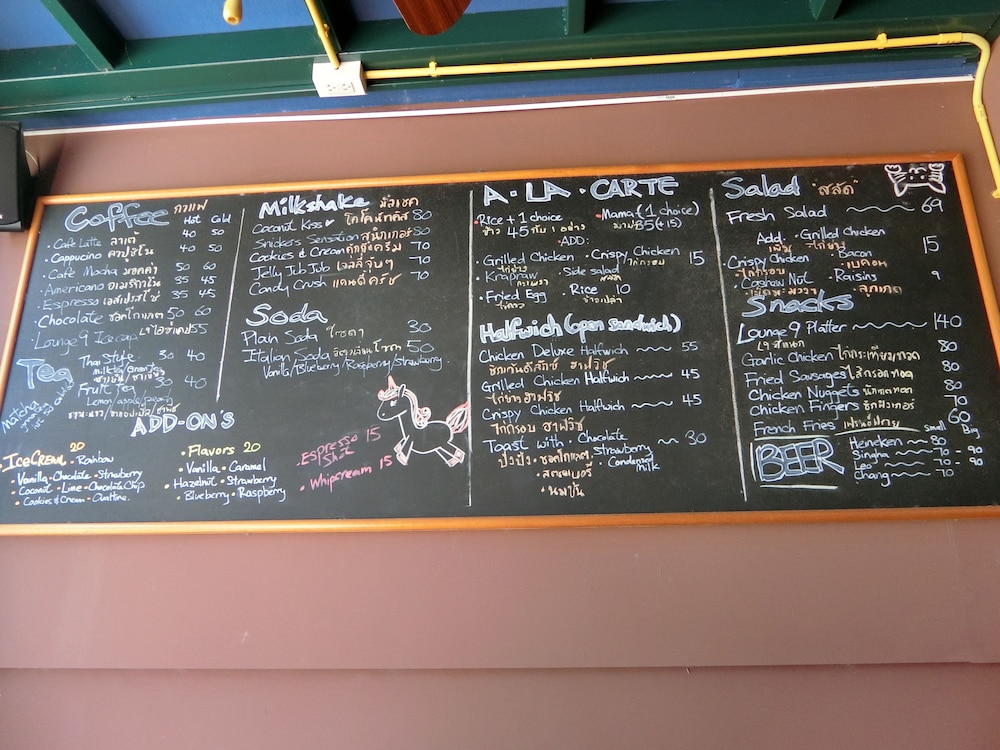 Coffee กาแฟ
Hot Cold
• Cafe Latte ลาเต้ 40 50
• Cappucino คาปูชิโน 40 50
• Cafe Mocha มอคค่า 50 60
• Americano อเมริกาโน 35 45
• Espresso เอสเปรสโซ่ 35 45
• Chocolate ช็อคโกแลต 50 60
• Lounge 9 Ice cap 55
Tea
Thai Style 30 40
Fruit Tea 30 40
Matcha
ADD-ON'S
• ICE CREAM 20 • Rainbow
• Vanilla • Chocolate • Strawberry
• Coconut • Lime • Chocolate Chip
• Cookies & Cream • Ovaltine
• Flavors 20
• Vanilla • Caramel
• Hazelnut • Strawberry
• Blueberry • Raspberry
• Espresso 15
Shot
• Whipcream 15
Milkshake
Coconut Kiss 80
Snickers Sensation 80
Cookies & Cream 70
Jelly Jub Jub เจลลี่จุ๊บๆ 70
Candy Crush แคนดี้ครัช 70
Soda
Plain Soda โซดา 30
Italian Soda 50
Vanilla/Blueberry/Raspberry/Strawberry
A • LA • CARTE
• Rice + 1 choice
ข้าว 45 กับ 1 อย่าง
• Mama (1 choice)
มาม่า 35 (+15)
ADD:
• Grilled Chicken • Crispy Chicken 15
ไก่ย่าง ไก่กรอบ
• Krapraw • Side salad
• Fried Egg • Rice 10
ไข่ดาว ข้าวเปล่า
Halfwich (open sandwich)
Chicken Deluxe Halfwich 55
ชิกเก้นดีลักซ์ ฮาฟวิช
Grilled Chicken Halfwich 45
ไก่ย่าง ฮาฟวิช
Crispy Chicken Halfwich 45
ไก่กรอบ ฮาฟวิช
Toast with • Chocolate 30
• Strawberry
• Condensed
Milk
ปังปิ้ง • ช็อคโกแลต
• สตรอเบอรี่
• นมข้น
Salad "สลัด"
Fresh Salad 69
Add • Grilled Chicken
เพิ่ม ไก่ย่าง 15
• Crispy Chicken • Bacon
ไก่กรอบ เบคอน
• Cashaw Nut • Raisins 9
เม็ดมะม่วง ลูกเกด
Snacks
Lounge 9 Platter 140
Garlic Chicken ไก่กระเทียมทอด 80
Fried Sausages ไส้กรอกทอด 80
Chicken Nuggets นักเกตทอด 70
Chicken Fingers ชิกฟิงเกอร์ 80
French Fries เฟรนช์ฟราย 60
BEER
Small Big
Heineken 80
Singha 70 - 90
Leo 70 - 90
Chang 70